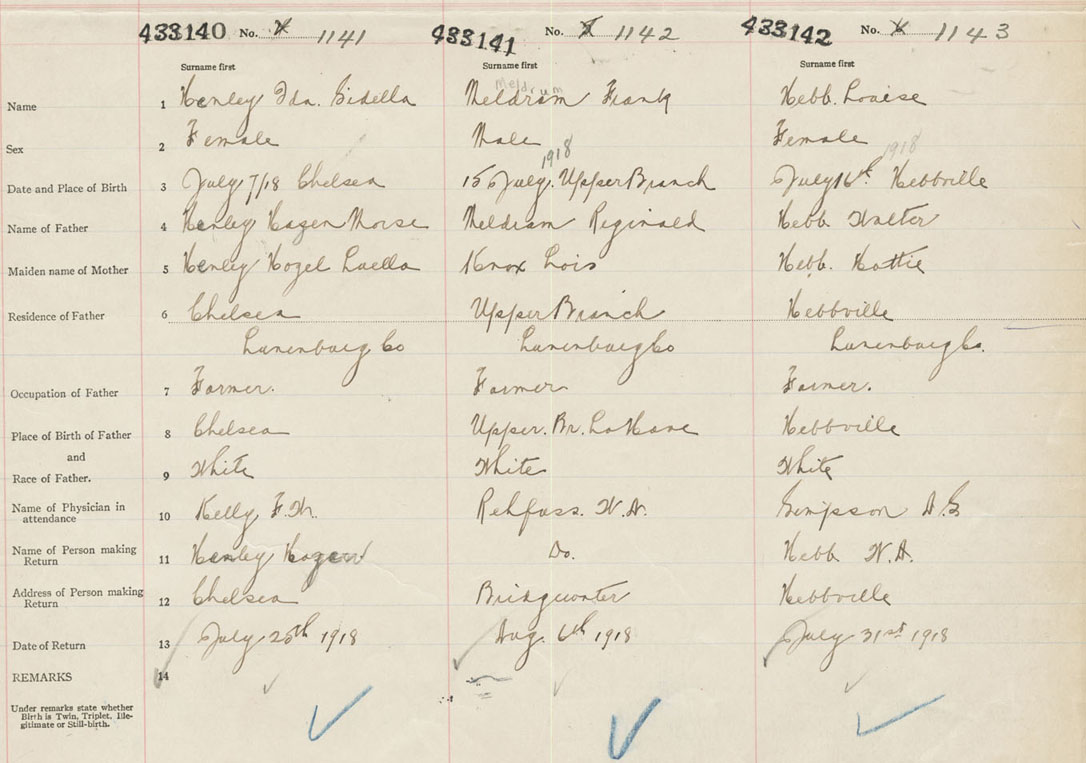 433140 No. 4 1141 433141 No. 5 1142 433142 No. 6 1143
Surname first Surname first Surname first
Meldrum
Name 1 Henley Ida. Sidella Meldram Frank Hebb. Louise
Sex 2 Female Male Female
1918 1918
Date and Place of Birth 3 July 7/18 Chelsea 15 July. Upper Branch July 16th. Hebbville
Name of Father 4 Henley Hazen Morse Meldram Reginald Hebb Walter
Maiden name of Mother 5 Henley Hazel Luella Knox Lois Hebb. Hattie
Residence of Father 6 Chelsea Upper Branch Hebbville
Lunenburg Co Lunenburg Co Lunenburg Co.
Occupation of Father 7 Farmer. Farmer Farmer.
Place of Birth of Father 8 Chelsea Upper. Br. LaHave Hebbville
and
Race of Father. 9 White White White
Name of Physician in
attendance 10 Kelly F.W. Rehfuss. W.N. Simpson A.G.
Name of Person making
Return 11 Henley Hazen Do. Hebb W.A.
Address of Person making
Return 12 Chelsea Bridgewater Hebbville
Date of Return 13 July 25th 1918 Aug. 6th 1918 July 31st 1918
REMARKS 14
Under remarks state whether
Birth is Twin, Triplet, Ille-
gitimate or Still-birth.